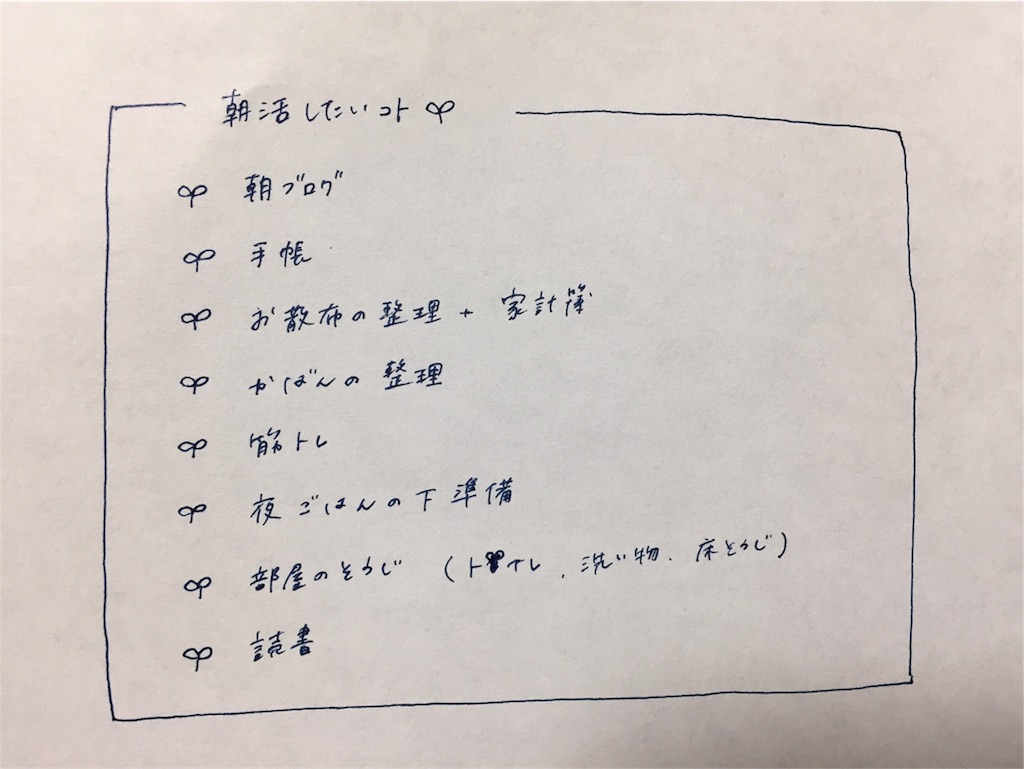 朝活したいコト
朝ブログ
手帳
お散布の整理 + 家計簿
かばんの整理
筋トレ
夜ごはんの下準備
部屋のそうじ (トイレ、洗い物、床そうじ)
読書